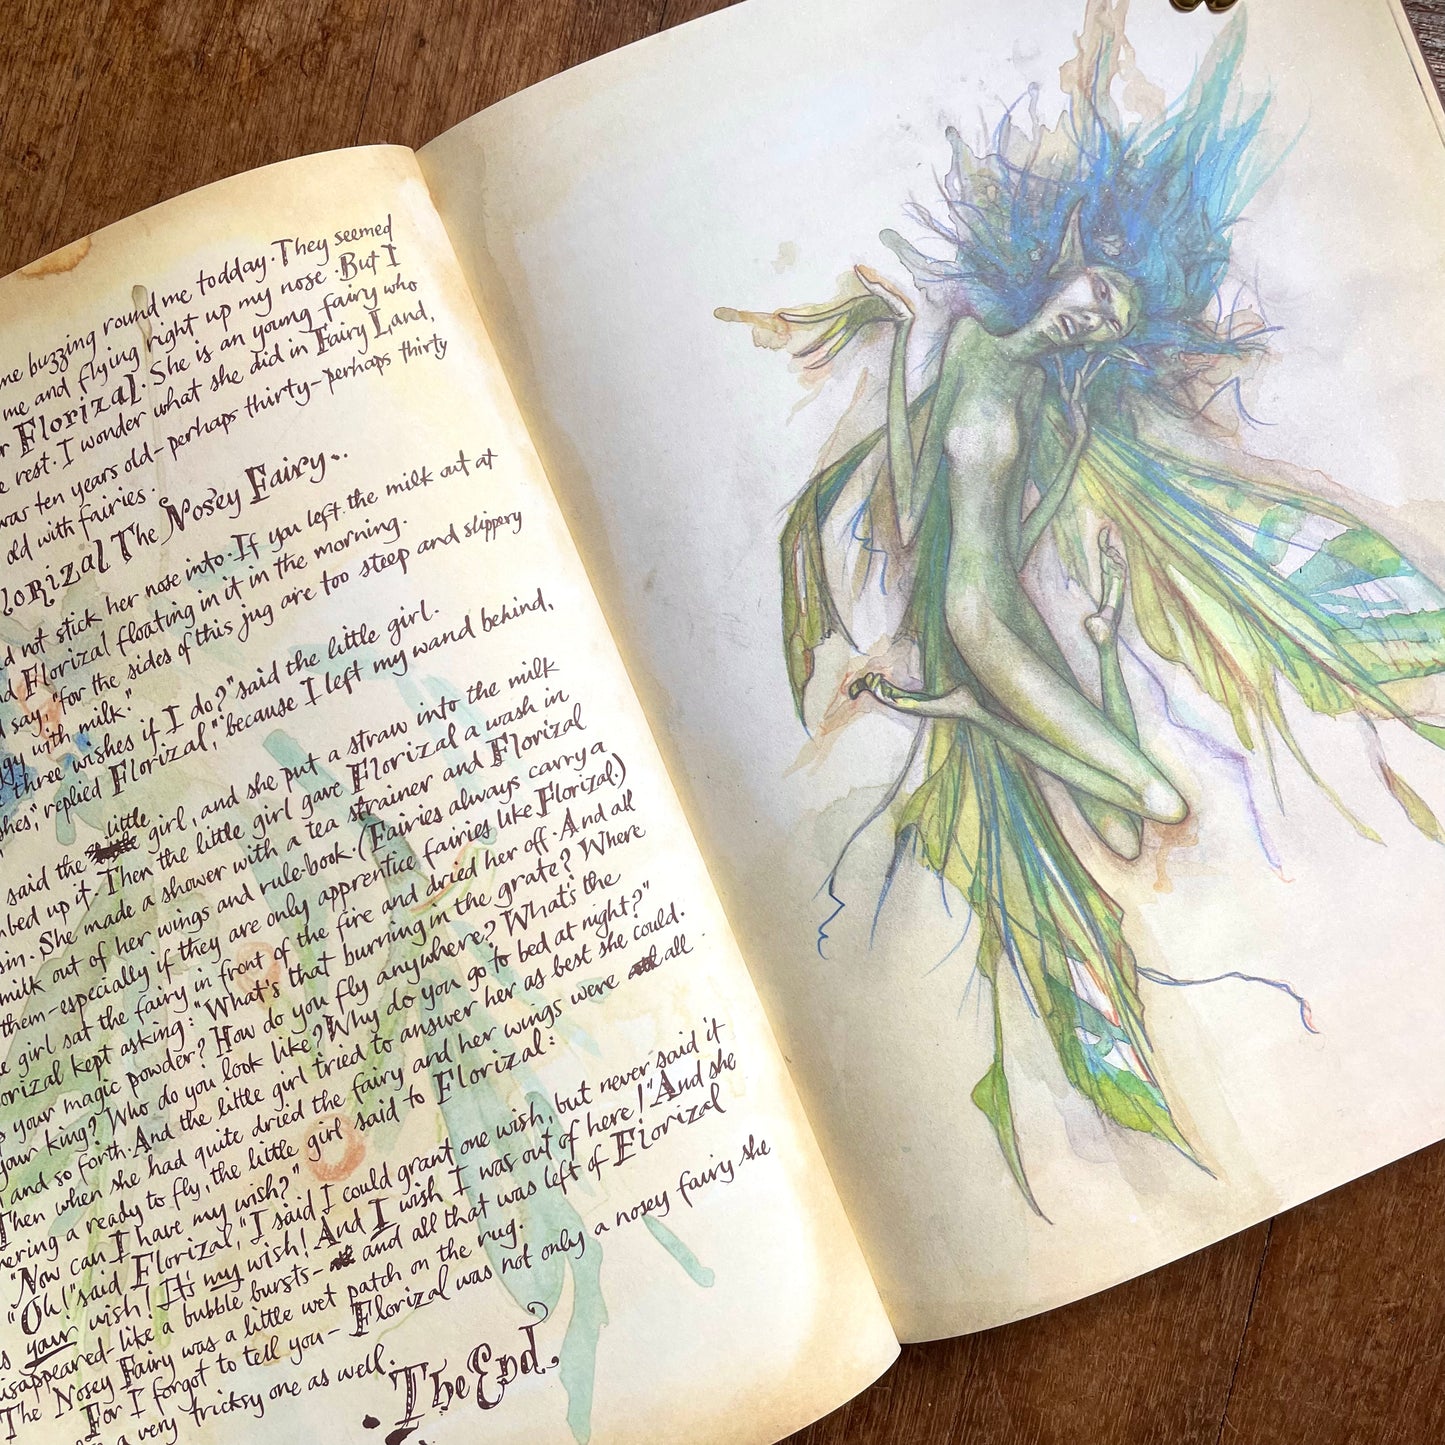 me buzzing round me todday. They seemed
me and flying right up my nose. But I
Florizal. She is an young fairy who
rest. I wonder what she did in Fairy Land,
was ten years old – perhaps thirty – perhaps thirty
old with fairies.
The Nosey Fairy..
not stick her nose into. If you left the milk out at
Florizal floating in it in the morning.
say, "for the sides of this jug are too steep and slippery
with milk."
three wishes if I do?" said the little girl.
replied Florizal, "because I left my wand behind,
little
said the girl, and she put a straw into the milk
up it. Then the little girl gave Florizal a wash in
She made a shower with a tea strainer and Florizal
milk out of her wings and rule-book. (Fairies always carry a
them – especially if they are only apprentice fairies like Florizal.)
girl sat the fairy in front of the fire and dried her off. And all
kept asking: "What's that burning in the grate? Where
your magic powder? How do you fly anywhere? What's the
your king? Who do you look like? Why do you go to bed at night?"
and so forth. And the little girl tried to answer her as best she could.
Then when she had quite dried the fairy and her wings were all
a ready to fly, the little girl said to Florizal:
"Now can I have my wish?"
"Oh!" said Florizal, "I said I could grant one wish, but never said it
your wish! It's my wish! And I wish I was out of here!" And she
disappeared – like a bubble bursts – and all that was left of Florizal
The Nosey Fairy was a little wet patch on the rug.
For I forgot to tell you – Florizal was not only a nosey fairy she
a very tricksy one as well.
The End.